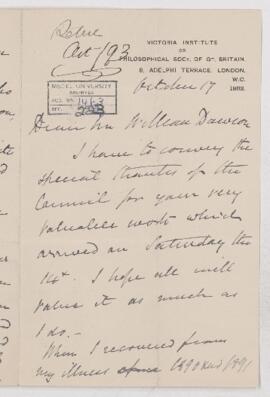 Oct /93
VICTORIA INSTITUTE
OR
PHILOSOPHICAL SOCY. OF GT. BRITAIN.
8, ADELPHI TERRACE, LONDON,
W.C.
October 17 1893.
McGILL UNIVERSITY
ARCHIVES
ACC. NO. 1463
REF.
Dear Sir William Dawson
I have to convey the
special thanks of the
Council for your very
valuable work which
arrived on Saturday the
14th. I hope all will
value it as much as
I do.-
When I recovered from
my illness 1890 and 1891